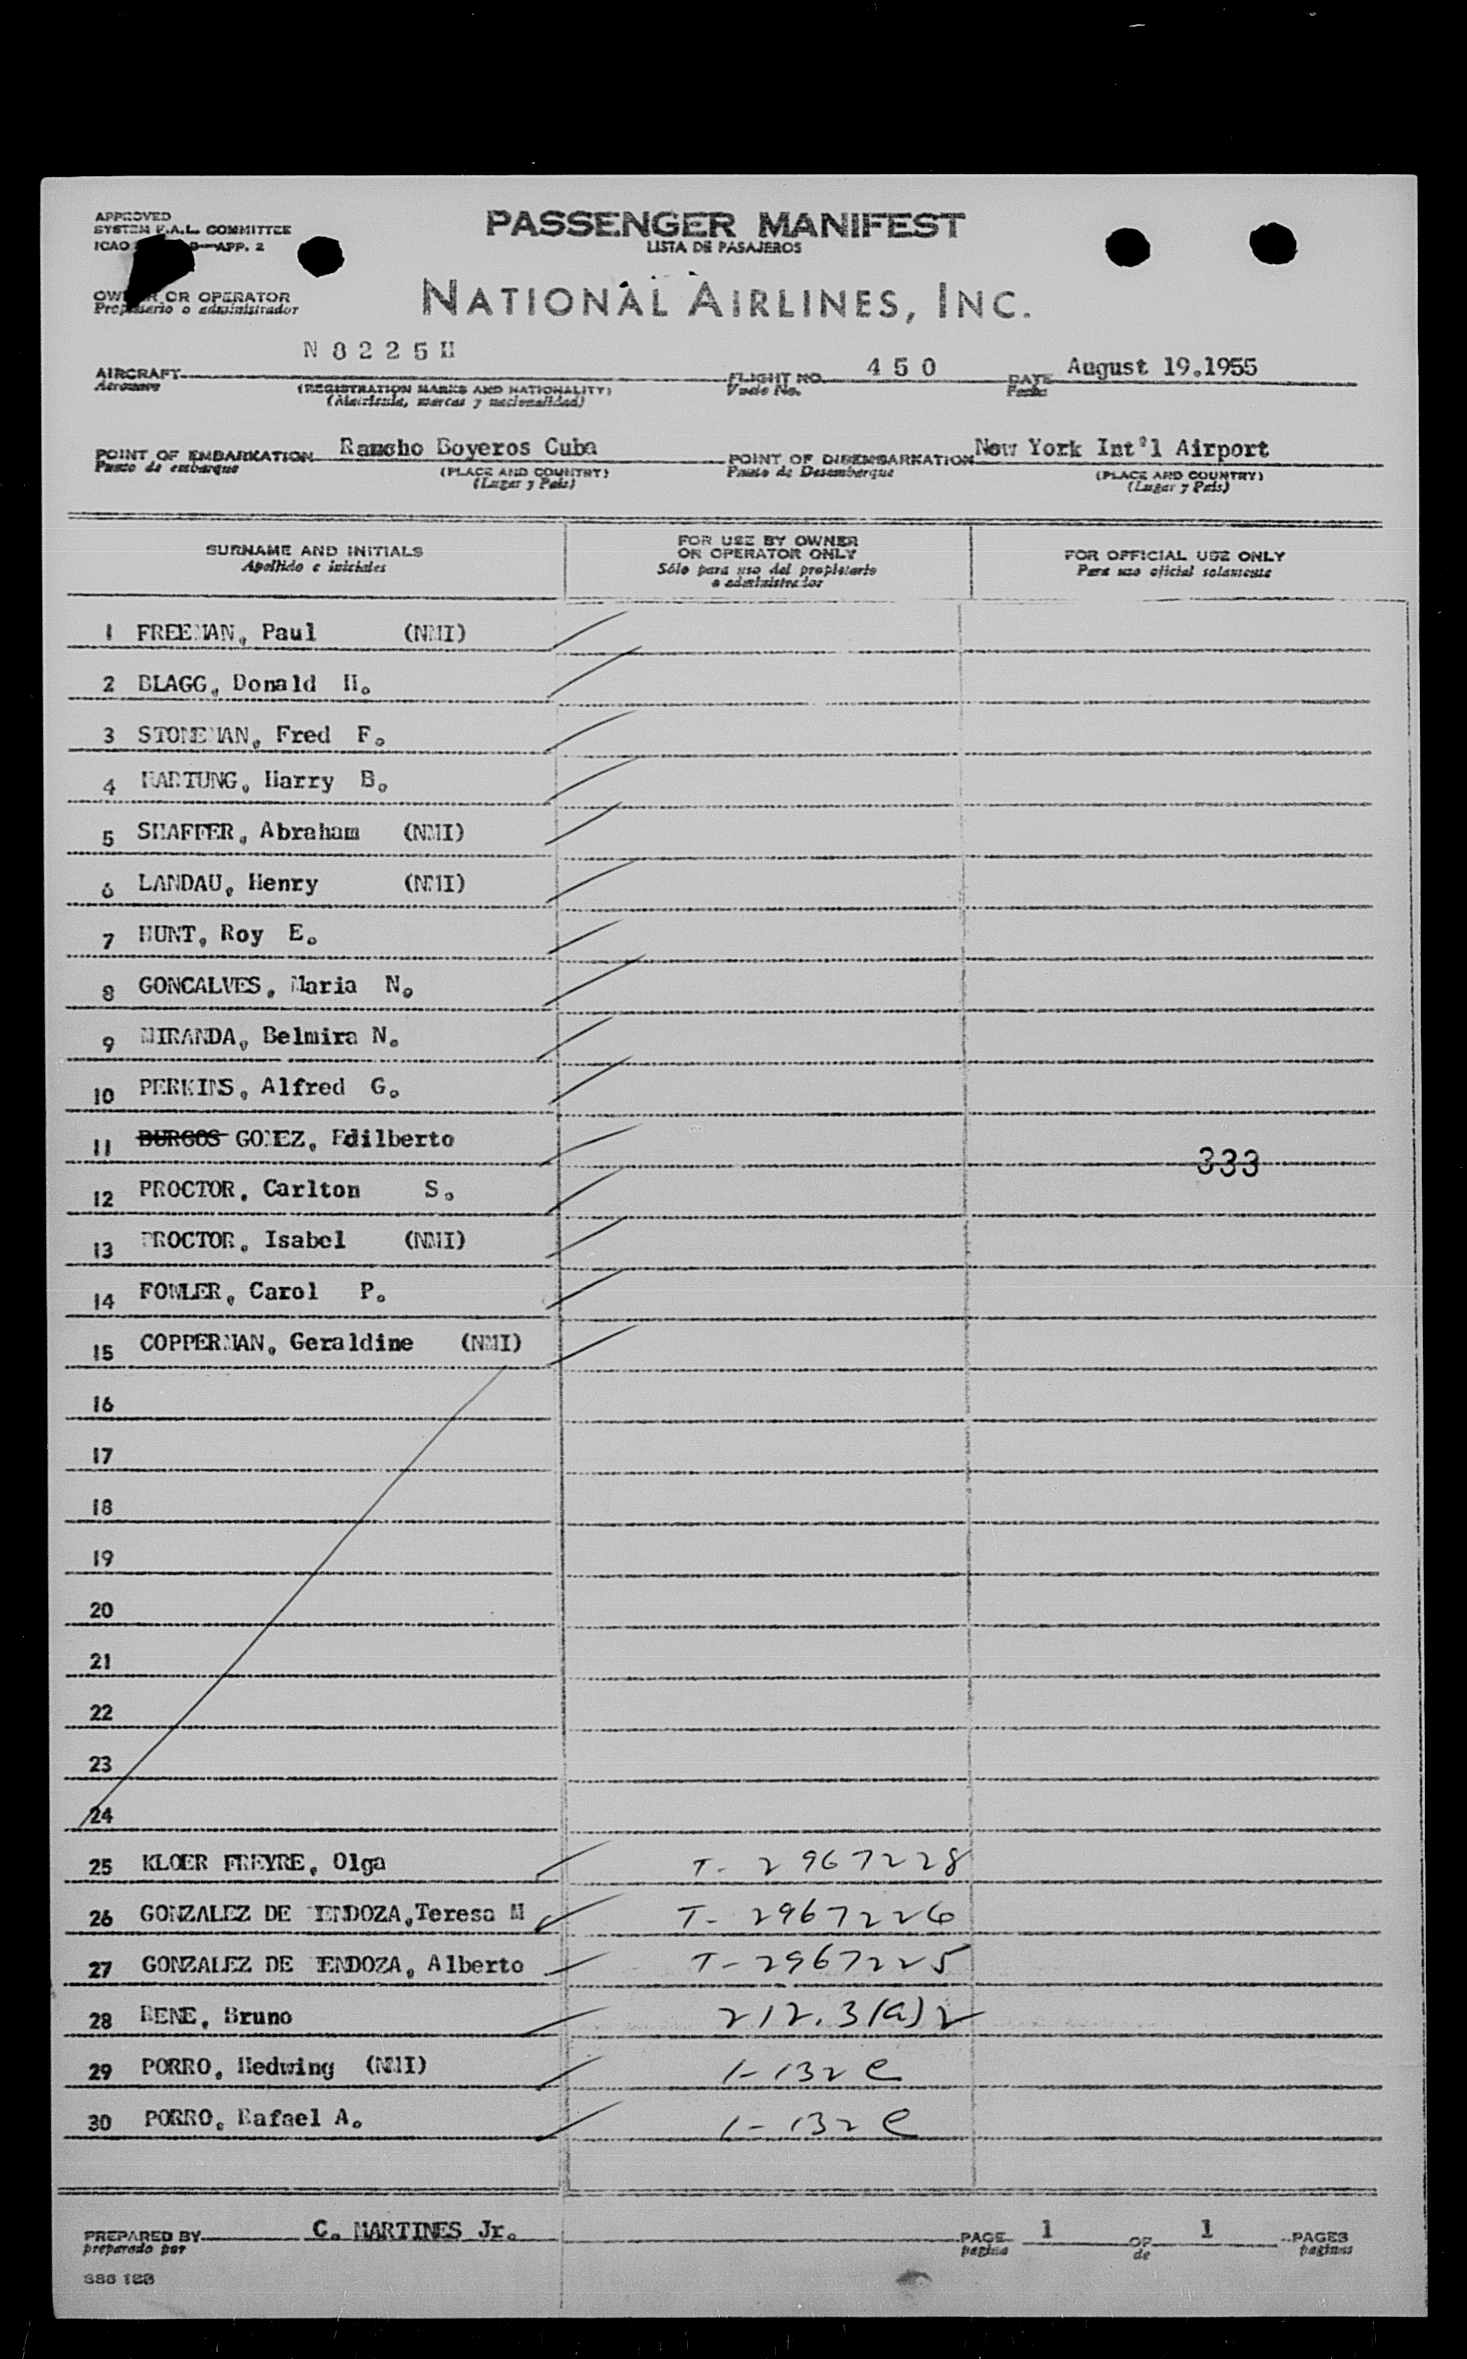 APPROVED
SYSTEM F.A.L. COMMITTEE
ICAO APP. 2
PASSENGER MANIFEST
LISTA DE PASAJEROS
OWNER OR OPERATOR
Propietario o administrador
NATIONAL AIRLINES, INC.
AIRCRAFT N 8225H FLIGHT NO. 450 DATE August 19.1955
Aeronave (REGISTRATION MARKS AND NATIONALITY) Vuelo No. Fecha
(Matricula, marcas y nacionalidad)
POINT OF EMBARKATION Rancho Boyeros Cuba POINT OF DISEMBARKATION New York Int'l Airport
Punto de embarque (PLACE AND COUNTRY) Punto de Desembarque (PLACE AND COUNTRY)
(Lugar y Pais) (Lugar y Pais)
SURNAME AND INITIALS
Apellido e iniciales
FOR USE BY OWNER
OR OPERATOR ONLY
Sólo para uso del propietario
o administrador
FOR OFFICIAL USE ONLY
Para uso oficial solamente
1 FREEMAN, Paul (NMI)
2 BLAGG, Donald H.
3 STONEMAN, Fred F.
4 HARTUNG, Harry B.
5 SHAFFER, Abraham (NMI)
6 LANDAU, Henry (NMI)
7 HUNT, Roy E.
8 GONCALVES, Maria N.
9 MIRANDA, Belmira N.
10 PERKINS, Alfred G.
11 BURGOS GOMEZ, Edilberto 333
12 PROCTOR, Carlton S.
13 PROCTOR, Isabel (NMI)
14 FOWLER, Carol P.
15 COPPERMAN, Geraldine (NMI)
16
17
18
19
20
21
22
23
24
25 KLOER FREYRE, Olga T- 2967228
26 GONZALEZ DE MENDOZA,Teresa M T- 2967226
27 GONZALEZ DE MENDOZA, Alberto T-2967225
28 BENE, Bruno 212.3(a)2
29 PORRO, Hedwing (NMI) 1-132 e
30 PORRO, Rafael A. 1-132 e
PREPARED BY C. MARTINES Jr. PAGE 1 OF 1 PAGES
preparado por pagina de paginas